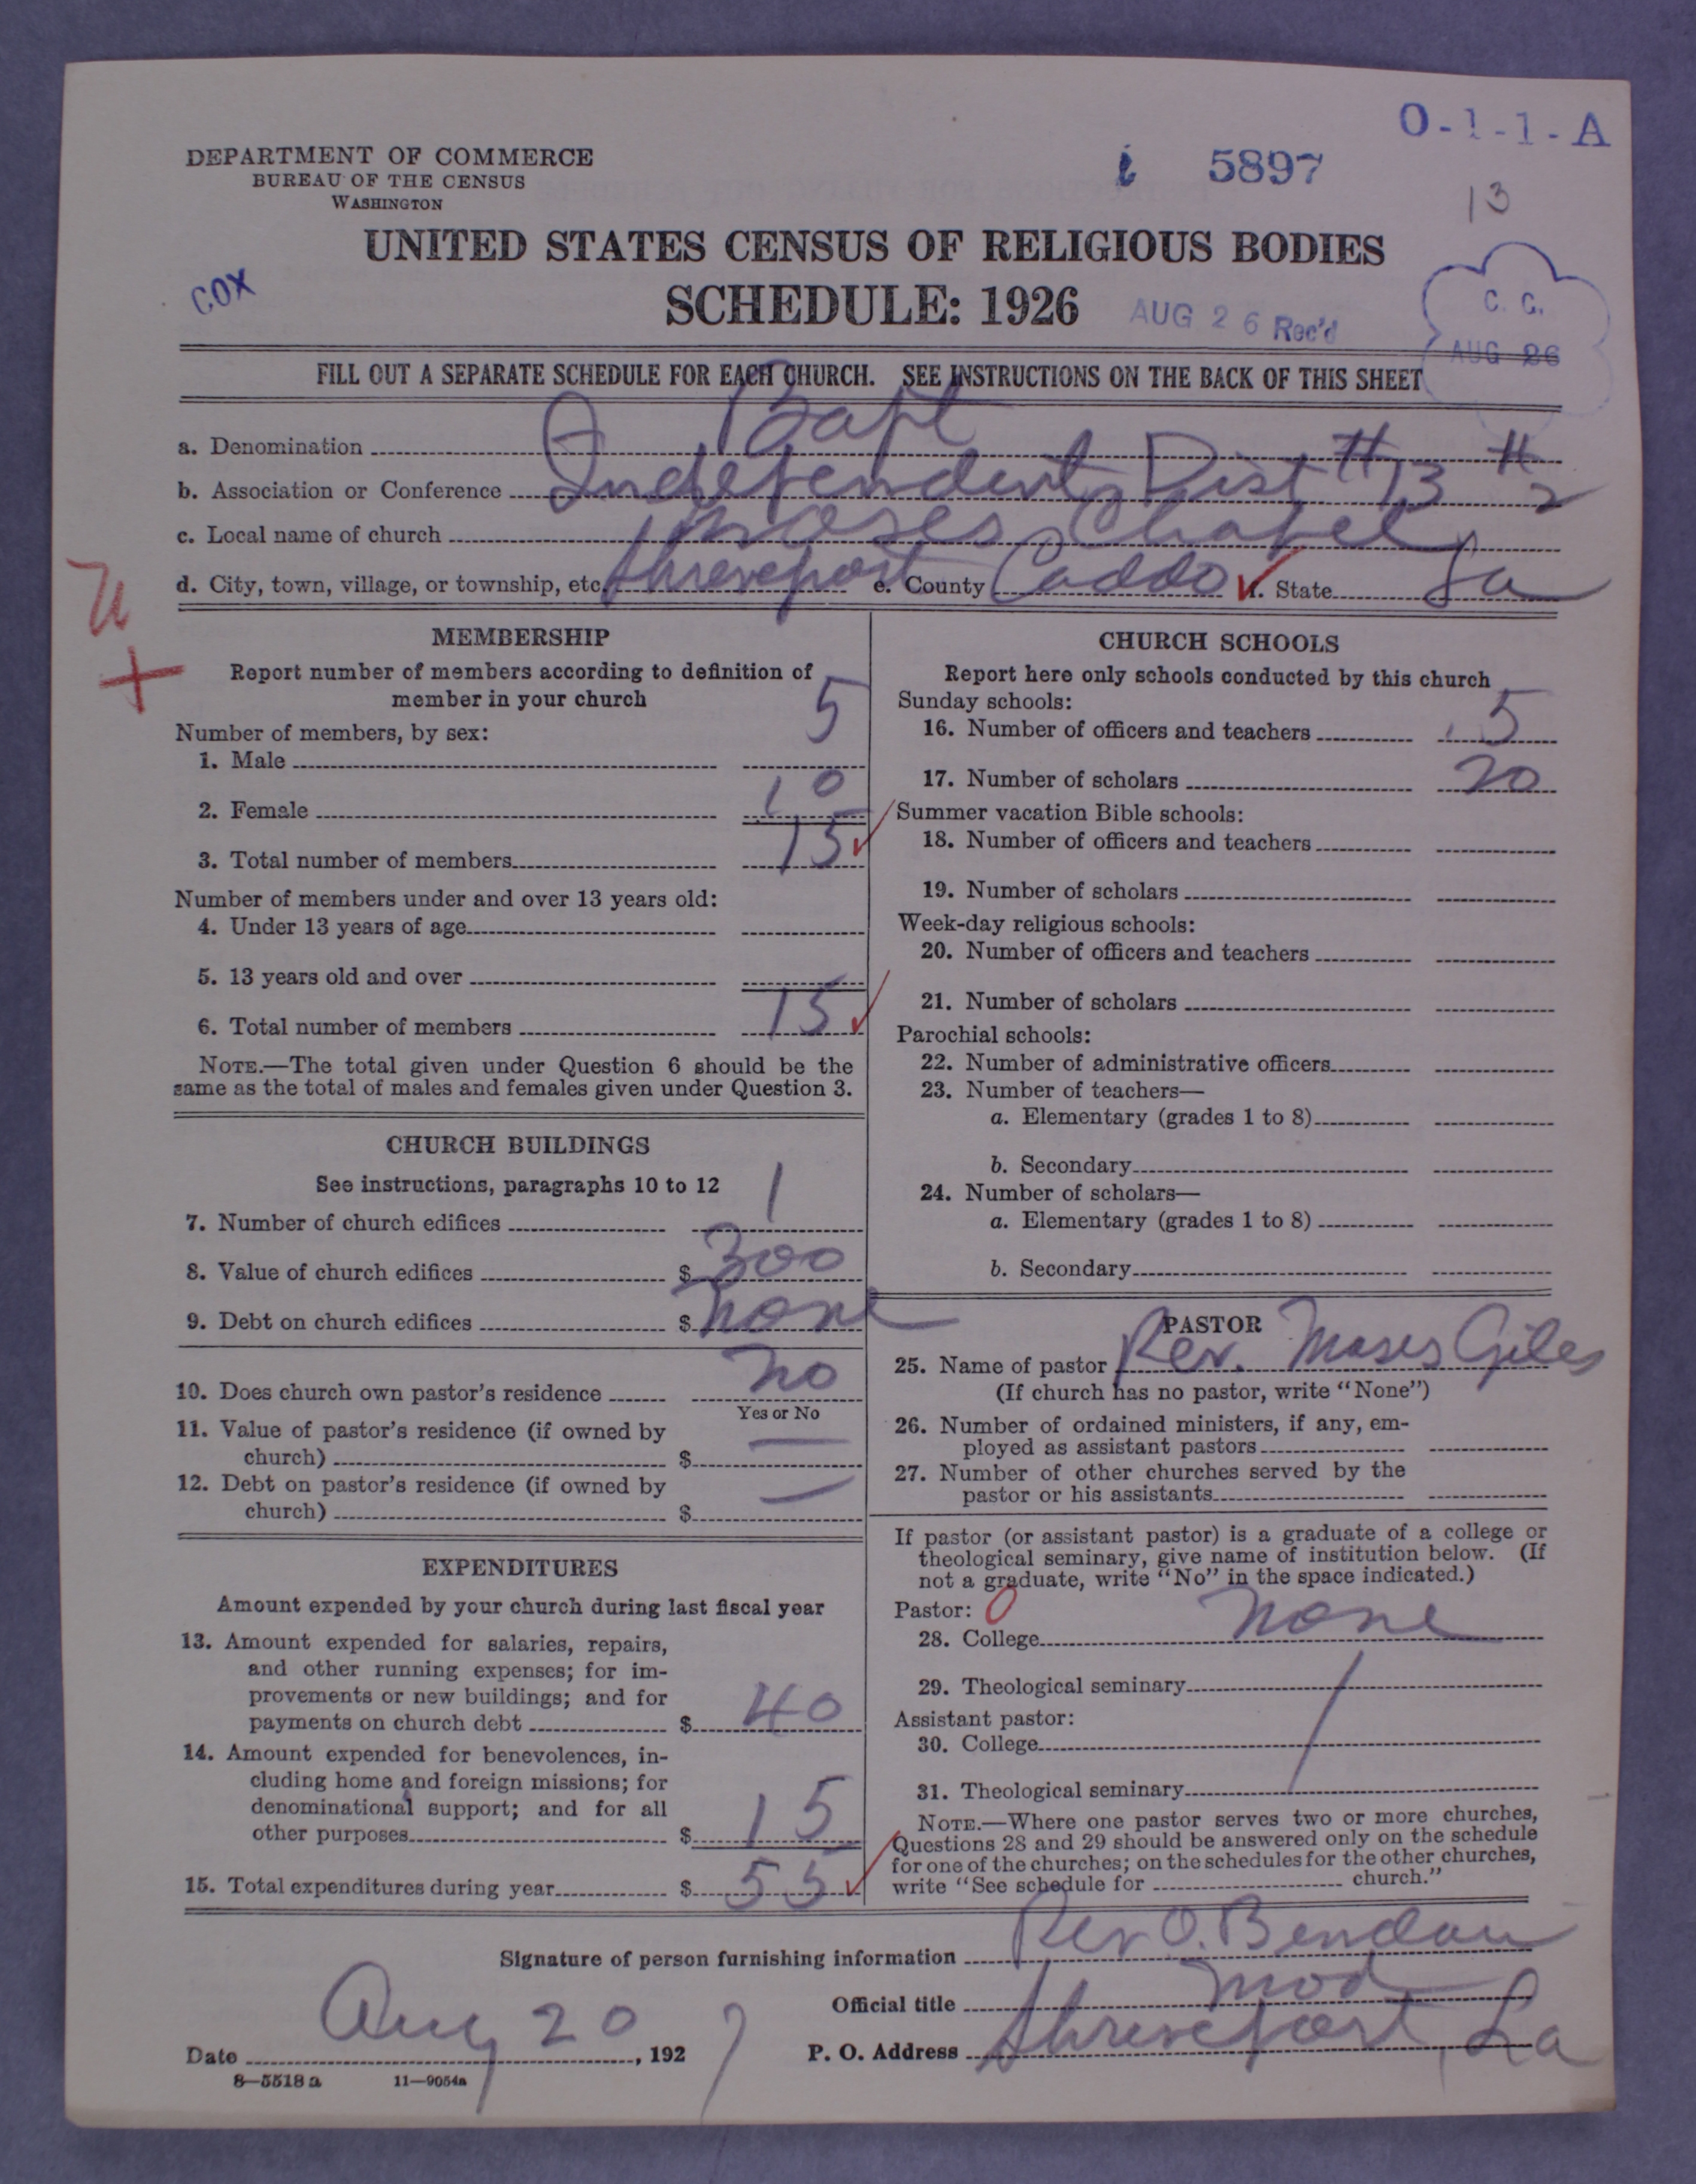 O-1-1-A
DEPARTMENT OF COMMERCE
BUREAU OF THE CENSUS
WASHINGTON
5897
13
UNITED STATES CENSUS OF RELIGIOUS BODIES
COX
SCHEDULE: 1926
AUG 26 Rec'd
C. C.
AUG 26
FILL OUT A SEPARATE SCHEDULE FOR EACH CHURCH. SEE INSTRUCTIONS ON THE BACK OF THIS SHEET
a. Denomination Bapt
b. Association or Conference Independent Dist #13 #2
c. Local name of church Moses Chapel
d. City, town, village, or township, etc. Shreveport e. County Caddo f. State La
MEMBERSHIP
Report number of members according to definition of
member in your church
Number of members, by sex:
1. Male 5
2. Female 10
3. Total number of members 15
Number of members under and over 13 years old:
4. Under 13 years of age
5. 13 years old and over
6. Total number of members 15
NOTE.—The total given under Question 6 should be the
same as the total of males and females given under Question 3.
CHURCH BUILDINGS
See instructions, paragraphs 10 to 12
7. Number of church edifices 1
8. Value of church edifices $ 300
9. Debt on church edifices $ None
10. Does church own pastor's residence No
Yes or No
11. Value of pastor's residence (if owned by
church) $ —
12. Debt on pastor's residence (if owned by
church) $ —
EXPENDITURES
Amount expended by your church during last fiscal year
13. Amount expended for salaries, repairs,
and other running expenses; for im-
provements or new buildings; and for
payments on church debt $ 40
14. Amount expended for benevolences, in-
cluding home and foreign missions; for
denominational support; and for all
other purposes $ 15
15. Total expenditures during year $ 55
CHURCH SCHOOLS
Report here only schools conducted by this church
Sunday schools:
16. Number of officers and teachers 5
17. Number of scholars 20
Summer vacation Bible schools:
18. Number of officers and teachers
19. Number of scholars
Week-day religious schools:
20. Number of officers and teachers
21. Number of scholars
Parochial schools:
22. Number of administrative officers
23. Number of teachers—
a. Elementary (grades 1 to 8)
b. Secondary
24. Number of scholars—
a. Elementary (grades 1 to 8)
b. Secondary
PASTOR
25. Name of pastor Rev. Moses Giles
(If church has no pastor, write "None")
26. Number of ordained ministers, if any, em-
ployed as assistant pastors
27. Number of other churches served by the
pastor or his assistants
If pastor (or assistant pastor) is a graduate of a college or
theological seminary, give name of institution below. (If
not a graduate, write "No" in the space indicated.)
Pastor: 0
28. College None
29. Theological seminary
Assistant pastor:
30. College
31. Theological seminary
NOTE.—Where one pastor serves two or more churches,
Questions 28 and 29 should be answered only on the schedule
for one of the churches; on the schedules for the other churches,
write "See schedule for church."
Signature of person furnishing information Rev O.
Official title Mod
Date Aug 20, 1927 P. O. Address Shreveport, La
8—5518 a 11—9054a